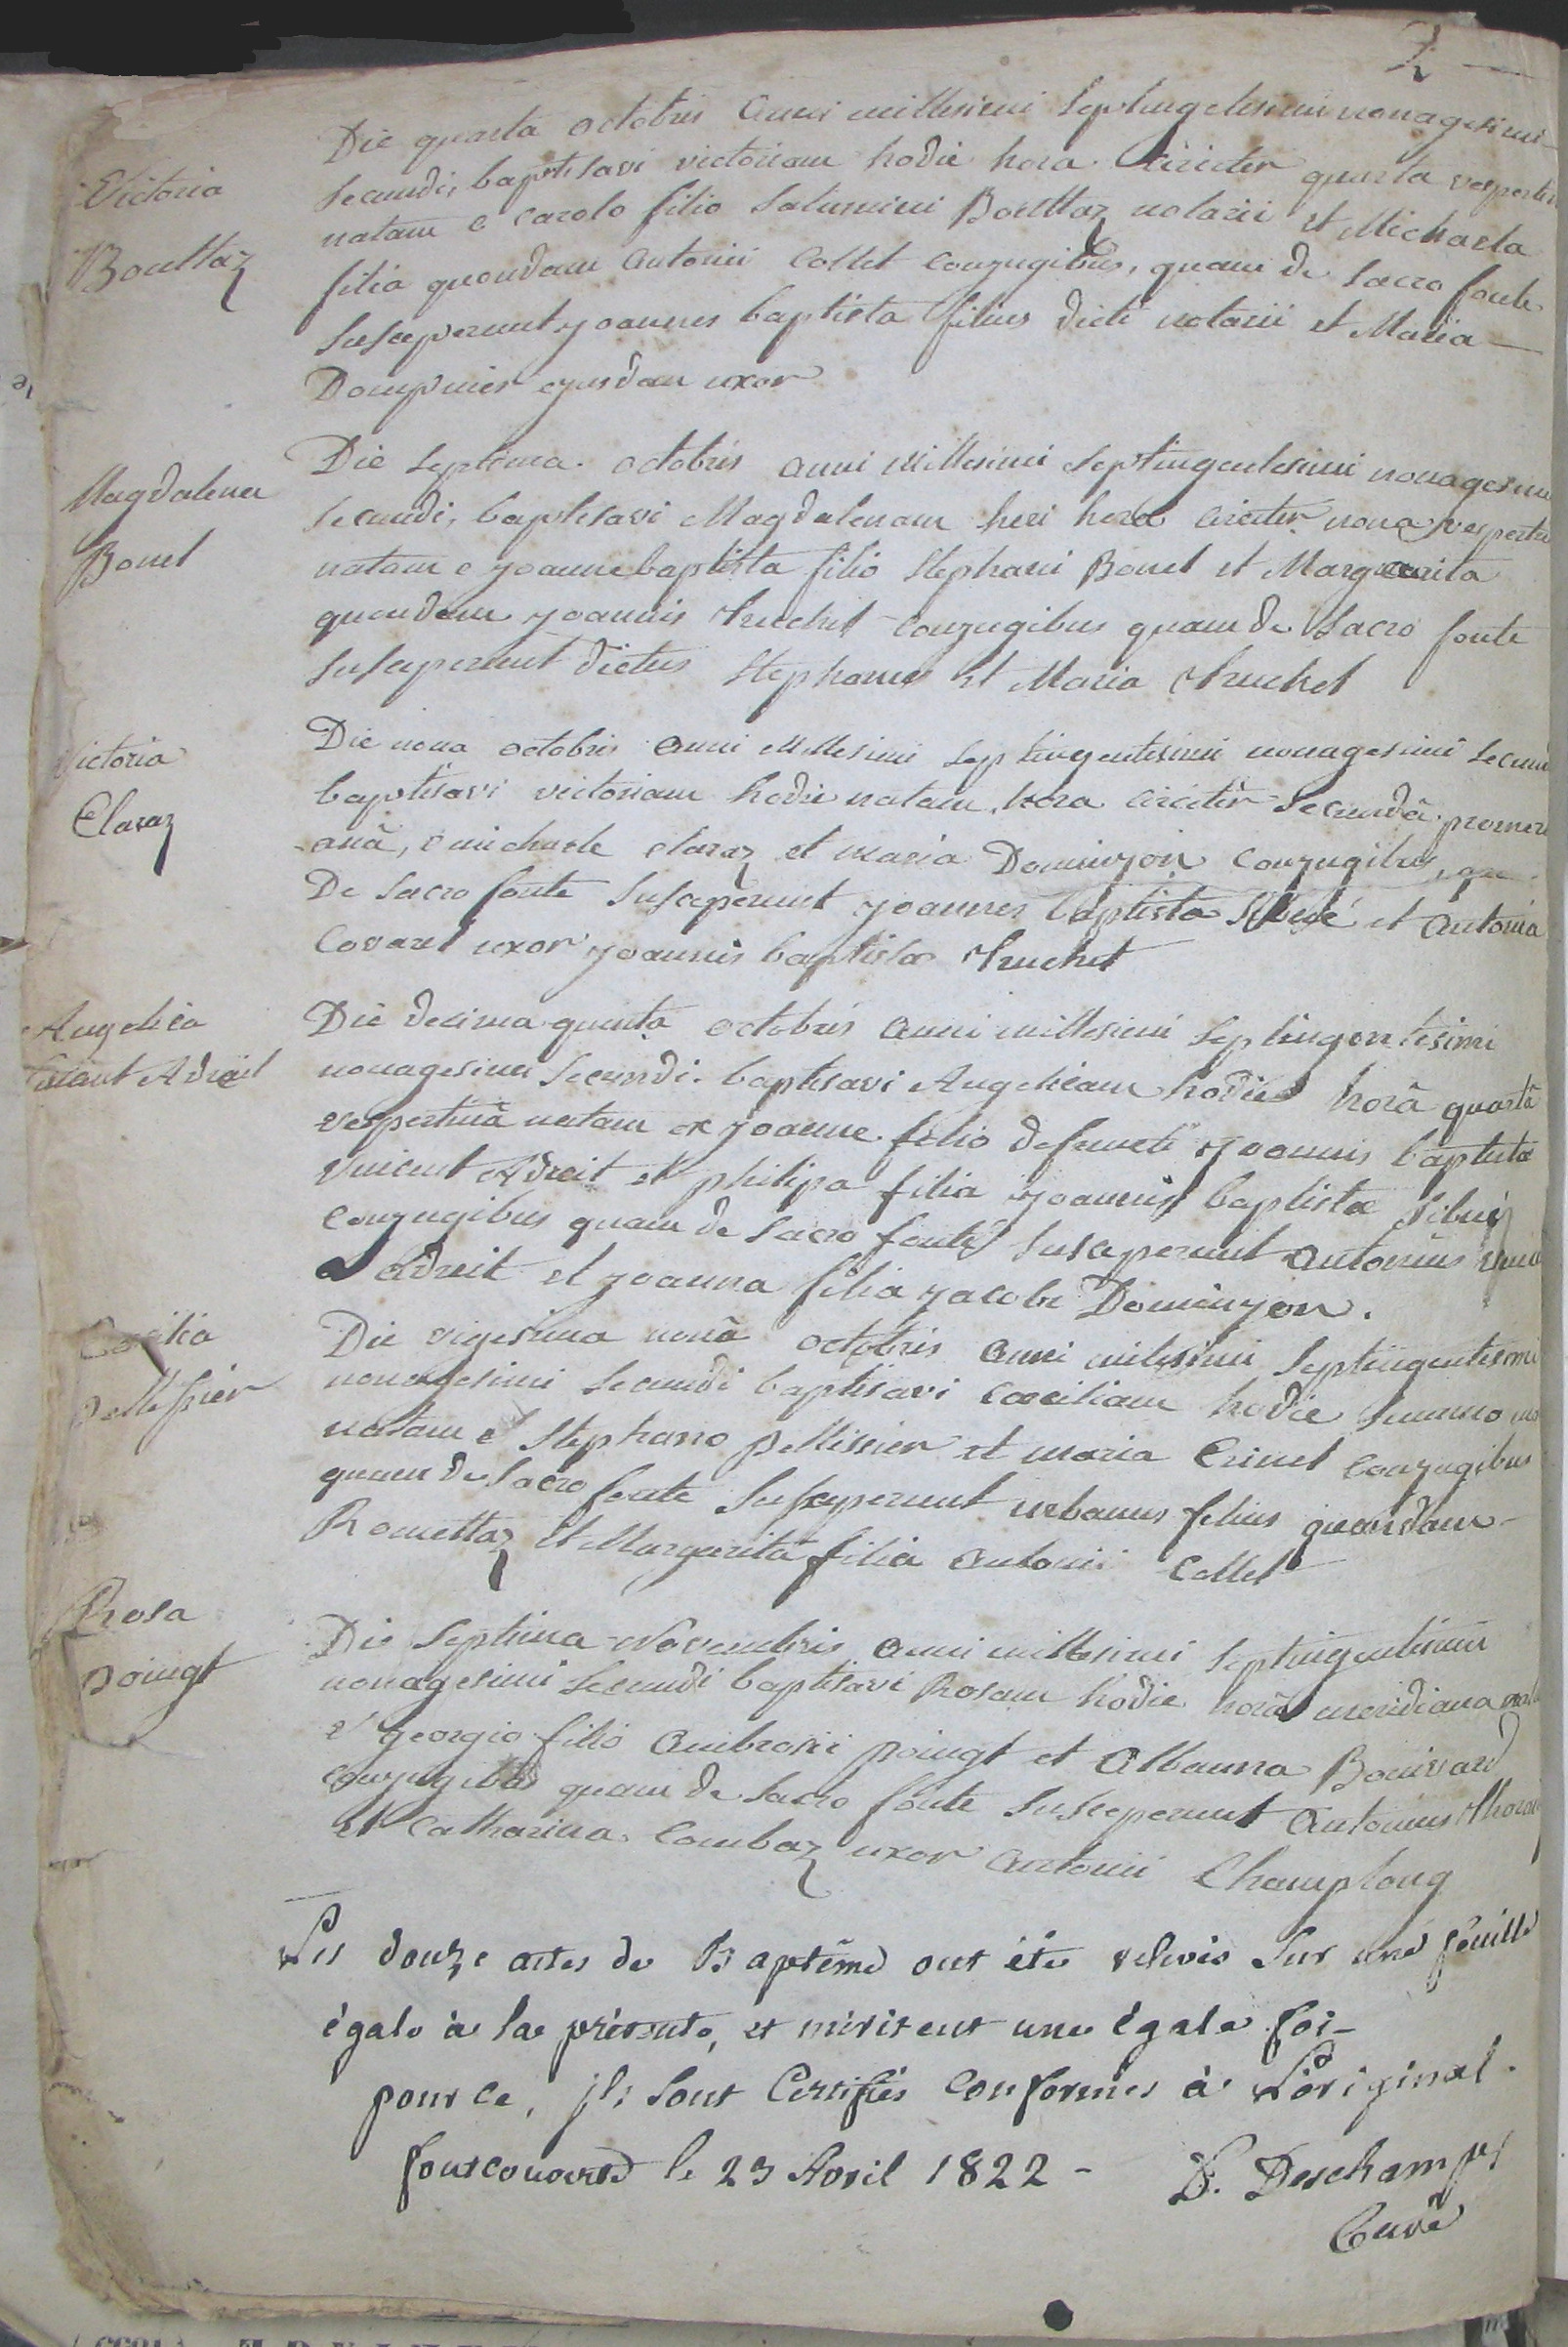 2
Die quarta octobris anni millesimi septingetesimi nonagesimi
Victoria
Bouttaz
secundi, baptisavi victoriam hodie hora circiter quarta vesperti
natam e carolo filio Saturnini Bouttaz notarii et Michaela
filia quondam antonii Collet conjugibus, quam de sacro fonte
susceperunt joannes baptista filius dicti notarii et Maria
Dompnier ejusdem uxor
Magdalena
Bonel
Die septima octobris anni millesimi septingentesimi nonagesimi
secundi, baptisavi Magdalenam heri hora circiter nona vesperti
natam e joanne baptista filio stephani Bonel et Margarita
quondam joannis truchet conjugibus quam de sacro fonte
susceperunt dictus stephanus et Maria truchet
Victoria
Claraz
Die nona octobris anni millesimi septingentesimi nonagesimi secun
baptisavi victoriam hodie natam, hora circiter secundâ pomeri
anâ, e michaele claraz et maria Dominjon conjugibus, qu
De sacro fonte susceperunt joannes baptista et antonia
Covarel uxor joannis baptistæ truchet
Angelica
vincent Adroit
Die decima quinta octobris anni millesimi septingentesimi
nonagesimi secundi baptisavi Angelicam hodie horâ quartâ
vespertinâ natam ex joanne filio defuncti joannis baptistæ
vincent Adroit et philipa filia joannis baptistæ sibué
conjugibus quam de sacro fonte susceperunt antonius vinc
adroit et joanna filia jacobi Dominjon.
Cæcilia
Pellissier
Die vigesima nonâ octobris anni milesimi septingentesimi
nonagesimi secundi baptisavi cæciliam hodie summo
natam e stephano pellissier et maria Crinel conjugibus
quam de sacro fonte susceperunt urbanus filius quondam
Romettaz et Margarita filia antonii Collet
Rosa
poingt
Die septima Novembris anni millesimi septingentesimi
nonagesimi secundi baptisavi Rosam hodie horâ meridiana nat
e georgio filio ambrosii poingt et albanna Bouivard
conjugibus quam de sacro fonte susceperunt antonius
et Catharina Combaz uxor antonii Champlong
Les douze actes de Baptême ont été relevés sur une feuille
égale à la présente, et méritent une égale foi-
pour ce, ils sont Certifiés conformes à L'original.
fontcouverte le 23 Avril 1822 - D. Deschamps
Curé